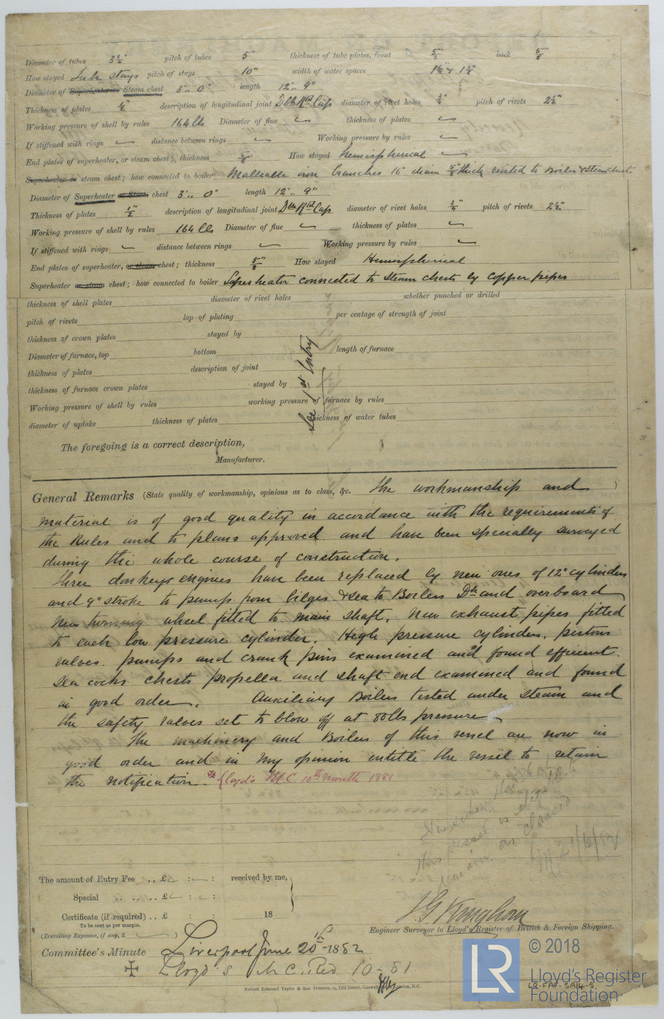 Diameter of tubes 3½ pitch of tubes 5" thickness of tube plates, front 5/8 back 5/8
How stayed Tube stays pitch of stays 10" width of water spaces
Diameter of Superheater Steam chest 3'. 0" length 12'. 9"
Thickness of plates description of longitudinal joint diameter of rivet holes pitch of rivets
Working pressure of shell by rules 164 lbs Diameter of flue thickness of plates
If stiffened with rings distance between rings Working pressure by rules
End plates of superheater, or steam chest; thickness How stayed hemispherical
Superheater or steam chest; how connected to boiler Malleable iron branches 16" diam thick riveted to Boiler & Steam chest
Diameter of Superheater or Steam chest 3'. 0" length 12'. 9"
Thickness of plates description of longitudinal joint diameter of rivet holes pitch of rivets
Working pressure of shell by rules 164 lb Diameter of flue thickness of plates
If stiffened with rings distance between rings Working pressure by rules
End plates of superheater, or steam chest; thickness How stayed Hemispherical
Superheater or steam chest; how connected to boiler Superheater connected to Steam chests by Copper pipes
thickness of shell plates diameter of rivet holes whether punched or drilled
pitch of rivets lap of plating per centage of strength of joint
thickness of crown plates stayed by
Diameter of furnace, top bottom length of furnace
thickness of plates description of joint
thickness of furnace crown plates stayed by
Working pressure of shell by rules working pressure of furnace by rules
diameter of uptake thickness of plates thickness of water tubes
See 1st Entry
The foregoing is a correct description,
Manufacturer.
General Remarks (State quality of workmanship, opinions as to class, &c. The workmanship and )
material is of good quality in accordance with the requirements of
the Rules and to plans approved and have been specially surveyed
during the whole course of construction.
Three donkey engines have been replaced by new ones of 12" cylinders
and 9" stroke to pump from bilges & sea to Boilers Dk and overboard
New turning wheel fitted to main shaft. New exhaust pipes fitted
to each low pressure cylinder. High pressure cylinders, pistons
valves. pumps and crank pins examined and found efficient.
Sea cocks chests propeller and shaft end examined and found
in good order. Auxiliary Boilers tested under steam and
the safety valves set to blow off at 80 lbs pressure
The machinery and Boilers of this vessel are now in
good order and in my opinion entitle the vessel to retain
the notification. Lloyd's M.C. 10th month 1881
this vessel is
The amount of Entry Fee .. £ : : received by me,
Special .. £ : :
Certificate (if required) .. £ : : 18
To be sent as per margin.
(Travelling Expenses, if any, £ )
Engineer Surveyor to Lloyd's Register of British & Foreign Shipping.
Committee's Minute Liverpool June 20th 1882
Lloyd's M.C. 10-81
LR
© 2018
Lloyd's Register
Foundation